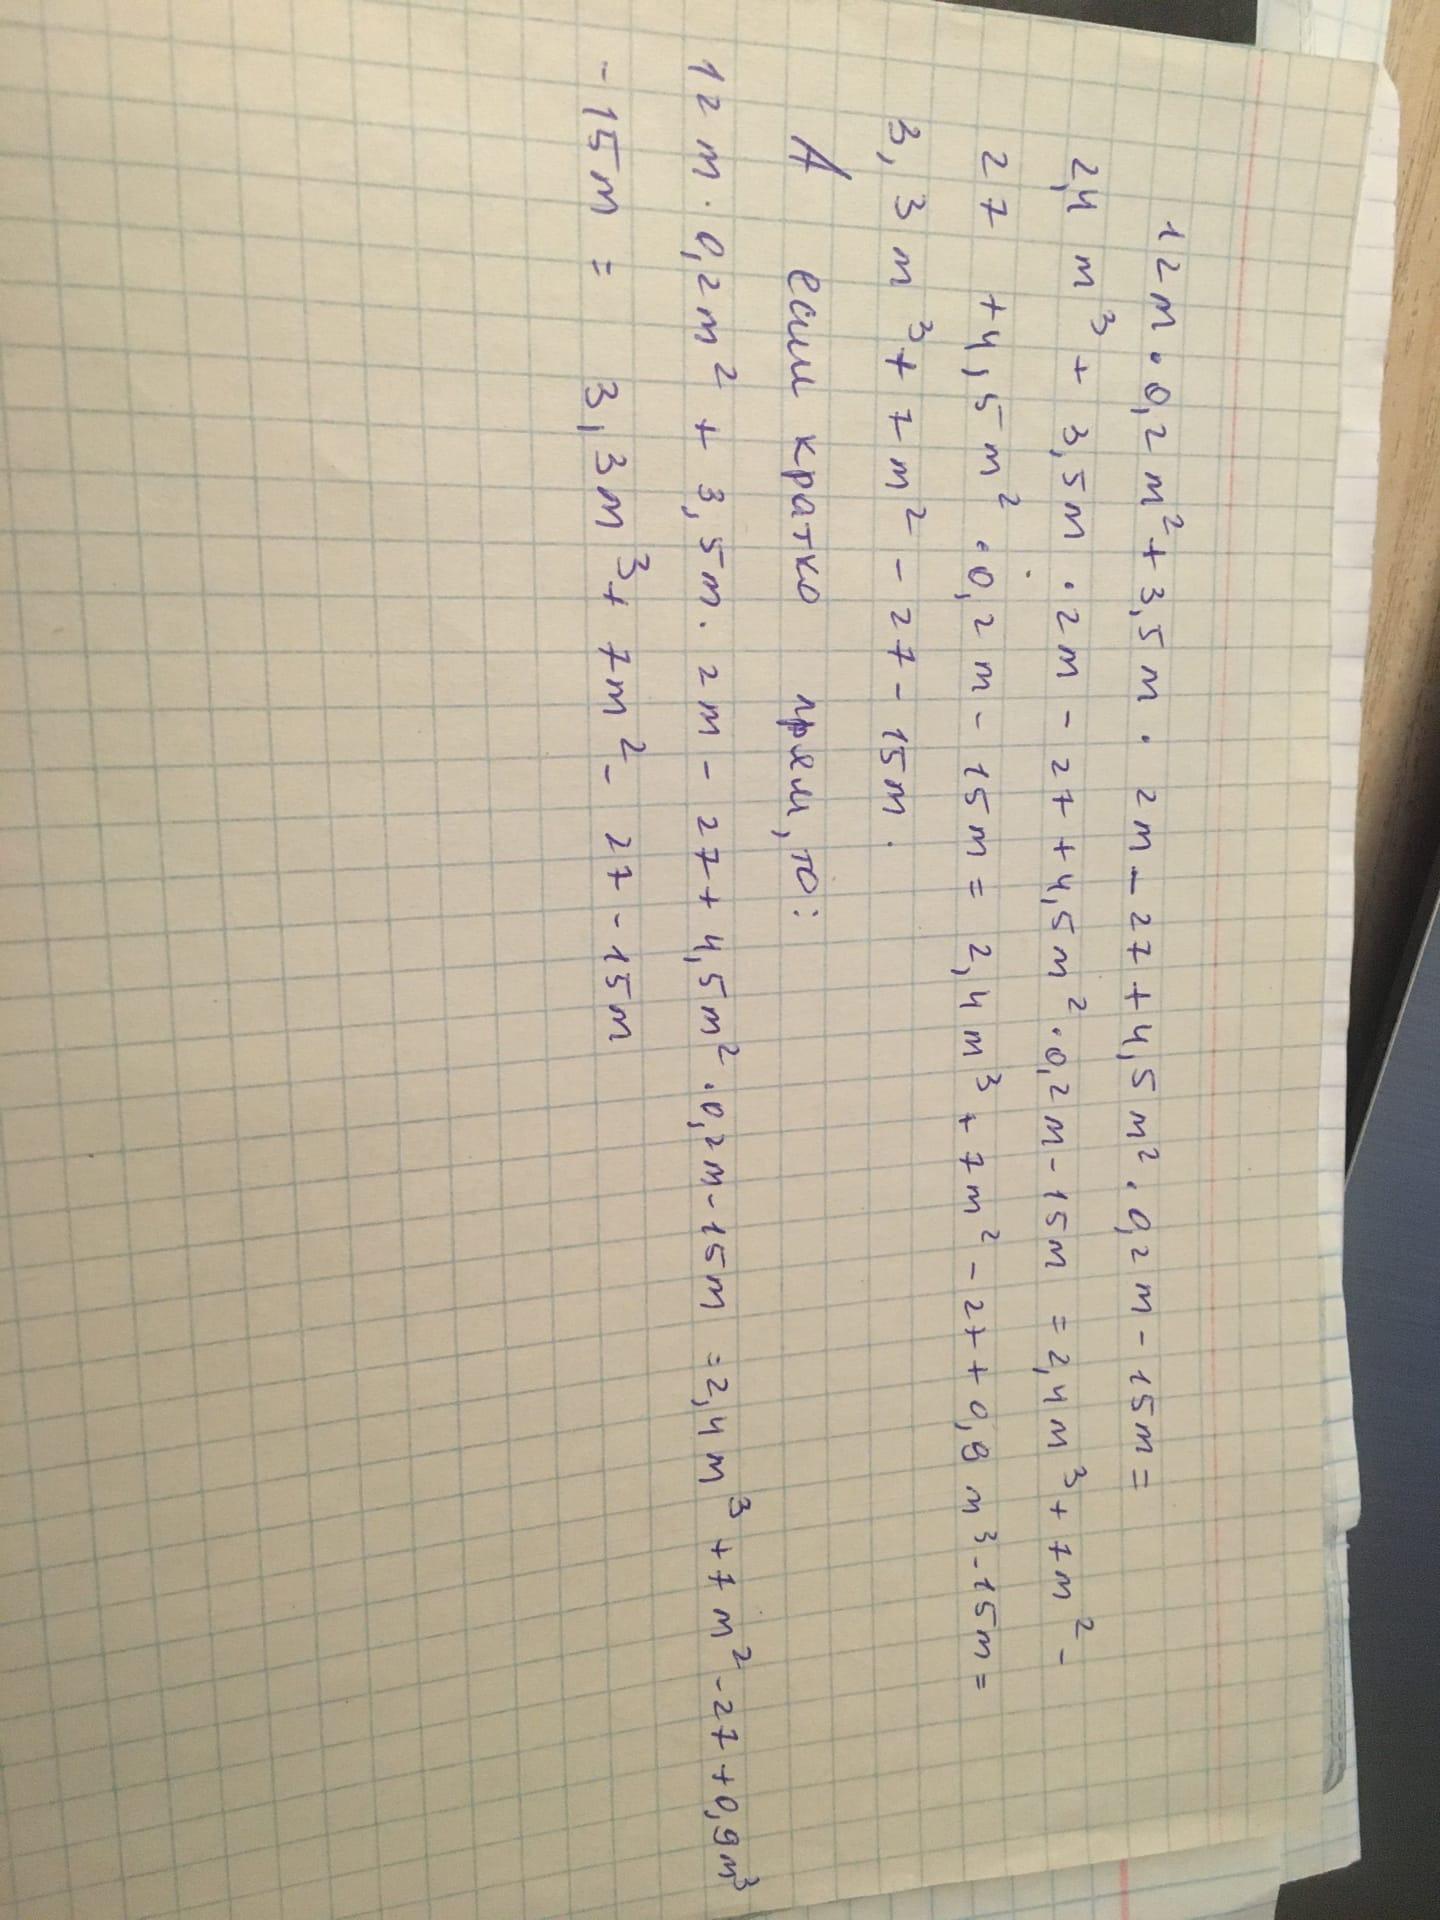 12m · 0,2m² + 3,5m · 2m - 27 + 4,5m² · 0,2m - 15m =
2,4m³ + 3,5m · 2m - 27 + 4,5m² · 0,2m - 15m = 2,4m³ + 7m² -
27 + 4,5m² · 0,2m - 15m = 2,4m³ + 7m² - 27 + 0,9m³ - 15m =
3,3m³ + 7m² - 27 - 15m.
А если кратко прям, то:
12m · 0,2m² + 3,5m · 2m - 27 + 4,5m² · 0,2m - 15m = 2,4m³ + 7m² - 27 + 0,9m³
- 15m = 3,3m³ + 7m² - 27 - 15m